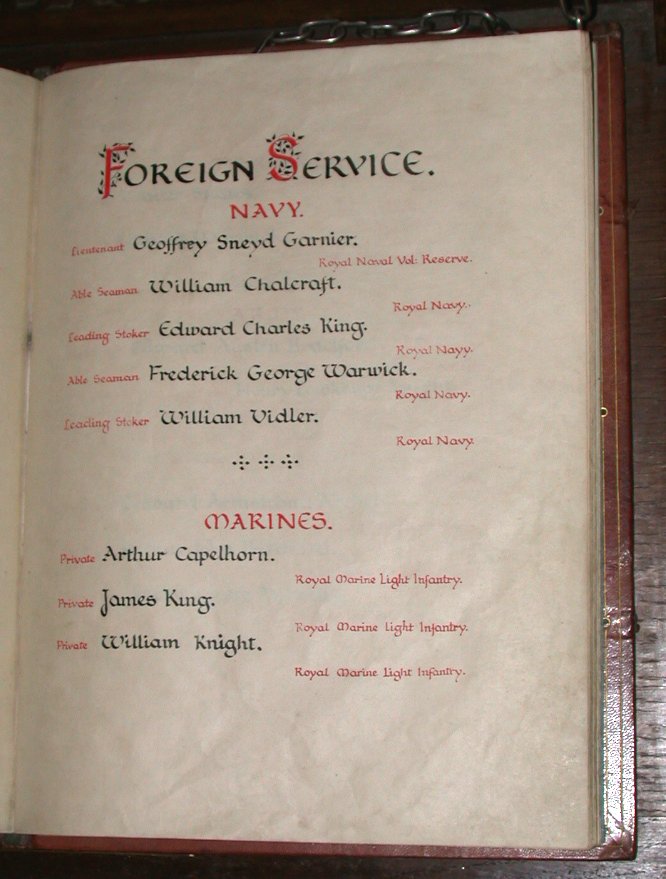 FOREIGN SERVICE.
NAVY.
Lieutenant Geoffrey Sneyd Garnier.
Royal Naval Vol: Reserve.
Able Seaman William Chalcraft.
Royal Navy.
Leading Stoker Edward Charles King.
Royal Navy.
Able Seaman Frederick George Warwick.
Royal Navy.
Leading Stoker William Vidler.
Royal Navy.
MARINES.
Private Arthur Capelhorn.
Royal Marine Light Infantry.
Private James King.
Royal Marine Light Infantry.
Private William Knight.
Royal Marine Light Infantry.